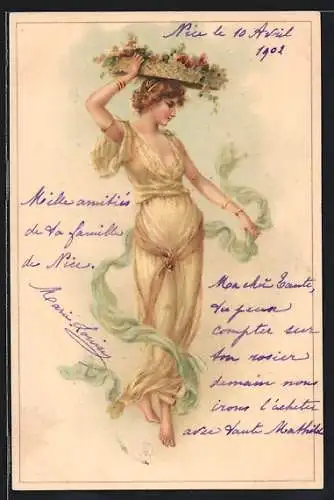 Nice le 10 Avril
1902
Mille amitiés
de ta famille
de Nice.
Marie Louise
Ma chè Tante,
tu peux
compter sur
ton rosier
demain nous
irons l'acheter
avec tante Mathilde